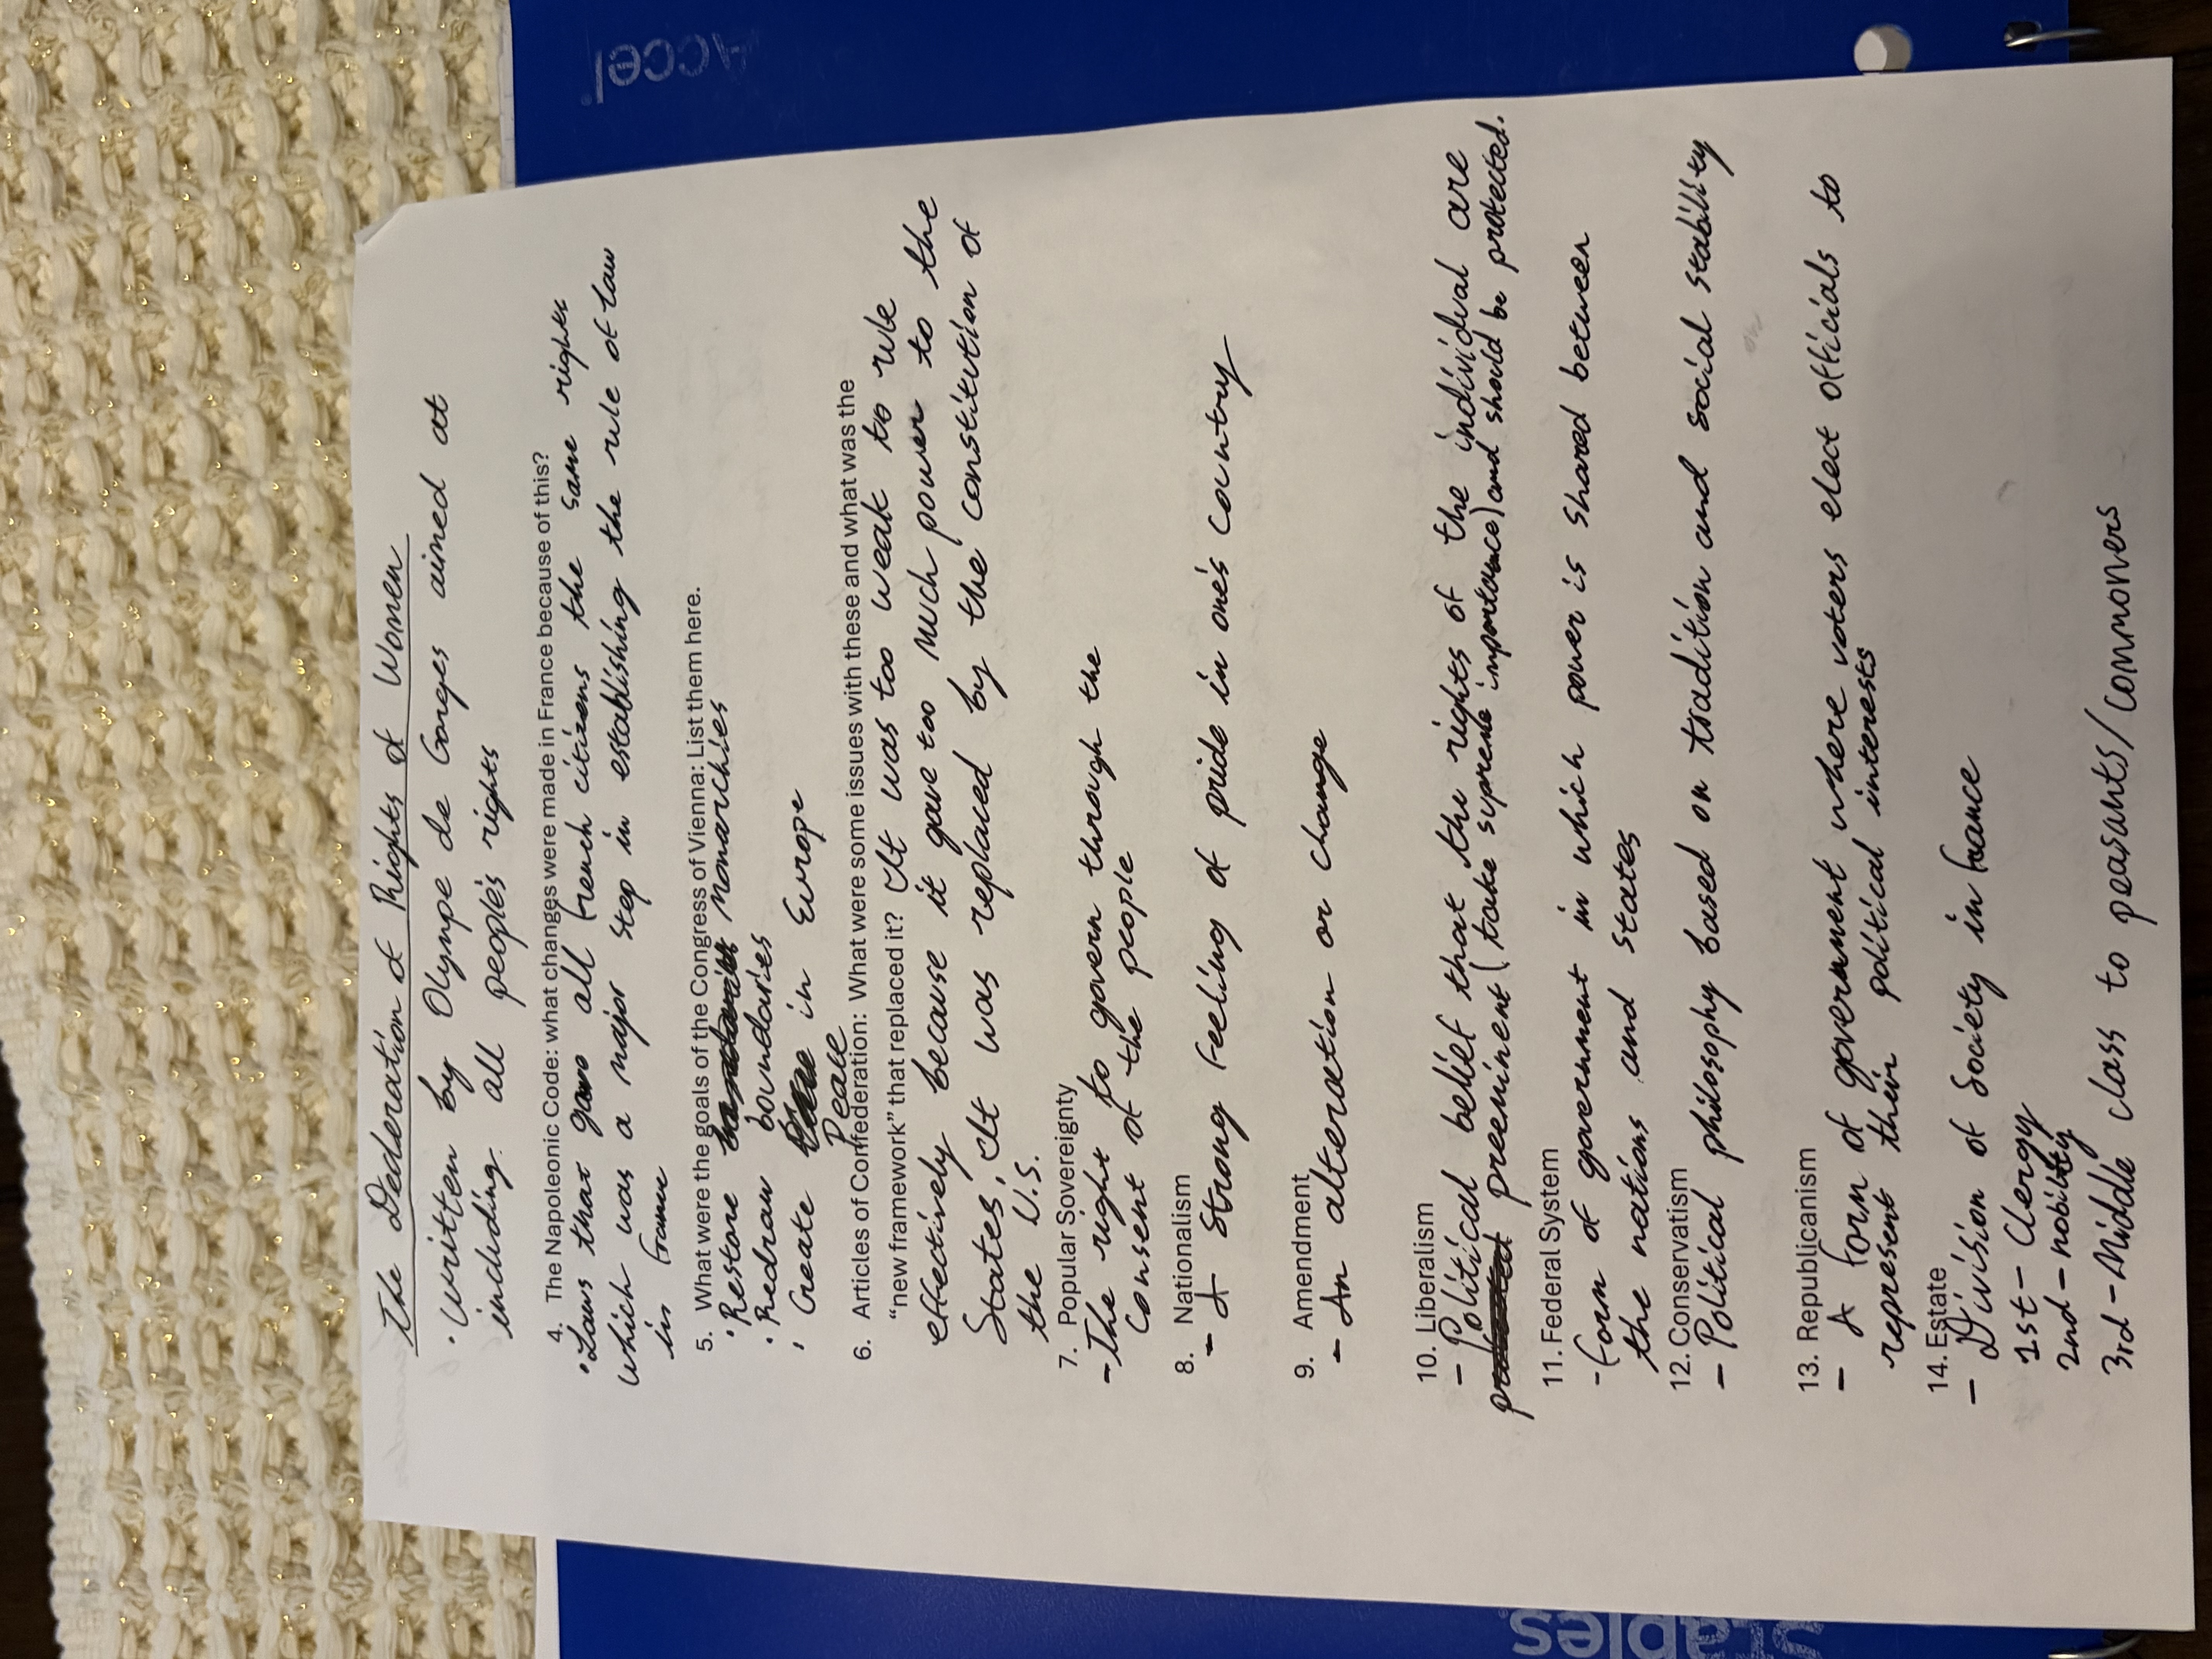 The Declaration of Rights of Women
• Written by Olympe de Gorges aimed at
including all people's rights
4. The Napoleonic Code: what changes were made in France because of this?
• Laws that gave all french citizens the same rights
which was a major step in establishing the rule of law
in france
5. What were the goals of the Congress of Vienna: List them here.
• Restore monarchies
• Redraw boundaries
• Create in Europe
Peace
6. Articles of Confederation: What were some issues with these and what was the
"new framework" that replaced it? It was too weak to rule
effectively because it gave too much power to the
States, It was replaced by the constitution of
the U.S.
7. Popular Sovereignty
- The right to govern through the
Consent of the people
8. Nationalism
- A Strong feeling of pride in one's country
9. Amendment
- An alteration or change
10. Liberalism
- Political belief that the rights of the individual are
preeminent (take supreme importance) and should be protected.
11. Federal System
- form of government in which power is shared between
the nations and states
12. Conservatism
- Political philosophy based on tradition and social stability
13. Republicanism
- A form of government where voters elect officials to
represent their political interests
14. Estate
- Division of Society in france
1st - Clergy
2nd - nobility
3rd - Middle class to peasants/commoners
Accel
Staples